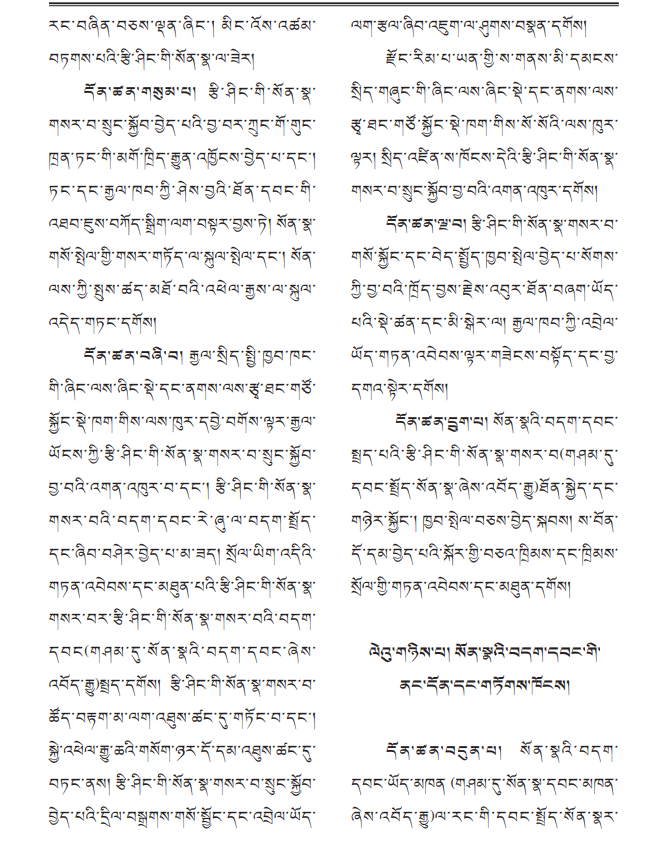 རང་བཞིན་བཅས་ལྡན་ཞིང་། མིང་འོས་འཚམ་
བཏགས་པའི་རྩི་ཤིང་གི་སོན་སྣ་ལ་ཟེར།
དོན་ཚན་གསུམ་པ། རྩི་ཤིང་གི་སོན་སྣ་
གསར་བ་སྲུང་སྐྱོབ་བྱེད་པའི་བྱ་བར་ཀྲུང་གོ་གུང་
ཁྲན་ཏང་གི་མགོ་ཁྲིད་རྒྱུན་འཁྱོངས་བྱེད་པ་དང་།
ཏང་དང་རྒྱལ་ཁབ་ཀྱི་ཤེས་བྱའི་ཐོན་དབང་གི་
འཐབ་ཇུས་བཀོད་སྒྲིག་ལག་བསྟར་བྱས་ཏེ། སོན་སྣ་
གསོ་སྤེལ་གྱི་གསར་གཏོད་ལ་སྐུལ་སྤེལ་དང་། སོན་
ལས་ཀྱི་སྤུས་ཚད་མཐོ་བའི་འཕེལ་རྒྱས་ལ་སྐུལ་
འདེད་གཏང་དགོས།
དོན་ཚན་བཞི་བ། རྒྱལ་སྲིད་སྤྱི་ཁྱབ་ཁང་
གི་ཞིང་ལས་ཞིང་སྡེ་དང་ནགས་ལས་རྩྭ་ཐང་གཙོ་
སྐྱོང་སྡེ་ཁག་གིས་ལས་ཁུར་དབྱེ་བགོས་ལྟར་རྒྱལ་
ཡོངས་ཀྱི་རྩི་ཤིང་གི་སོན་སྣ་གསར་བ་སྲུང་སྐྱོབ་
བྱ་བའི་འགན་འཁུར་བ་དང་། རྩི་ཤིང་གི་སོན་སྣ་
གསར་བའི་བདག་དབང་རེ་ཞུ་ལ་བདག་སྤྲོད་
དང་ཞིབ་བཤེར་བྱེད་པ་མ་ཟད། སྲོལ་ཡིག་འདིའི་
གཏན་འབེབས་དང་མཐུན་པའི་རྩི་ཤིང་གི་སོན་སྣ་
གསར་བར་རྩི་ཤིང་གི་སོན་སྣ་གསར་བའི་བདག་
དབང(གཤམ་དུ་སོན་སྣའི་བདག་དབང་ཞེས་
འབོད་རྒྱུ)སྤྲད་དགོས། རྩི་ཤིང་གི་སོན་སྣ་གསར་བ་
ཚོད་བརྟག་མ་ལག་འཐུས་ཚང་དུ་གཏོང་བ་དང་།
སྐྱེ་འཕེལ་རྒྱུ་ཆའི་གསོག་ཉར་དོ་དམ་འཐུས་ཚང་དུ་
བཏང་ནས། རྩི་ཤིང་གི་སོན་སྣ་གསར་བ་སྲུང་སྐྱོབ་
བྱེད་པའི་དྲིལ་བསྒྲགས་གསོ་སྦྱོང་དང་འབྲེལ་ཡོད་
ལག་རྩལ་ཞིབ་འཇུག་ལ་ཤུགས་བསྣན་དགོས།
རྫོང་རིམ་པ་ཡན་གྱི་ས་གནས་མི་དམངས་
སྲིད་གཞུང་གི་ཞིང་ལས་ཞིང་སྡེ་དང་ནགས་ལས་
རྩྭ་ཐང་གཙོ་སྐྱོང་སྡེ་ཁག་གིས་སོ་སོའི་ལས་ཁུར་
ལྟར། སྲིད་འཛིན་ས་ཁོངས་དེའི་རྩི་ཤིང་གི་སོན་སྣ་
གསར་བ་སྲུང་སྐྱོབ་བྱ་བའི་འགན་འཁུར་དགོས།
དོན་ཚན་ལྔ་བ། རྩི་ཤིང་གི་སོན་སྣ་གསར་བ་
གསོ་སྐྱོང་དང་བེད་སྤྱོད་ཁྱབ་སྤེལ་བྱེད་པ་སོགས་
ཀྱི་བྱ་བའི་ཁྲོད་བྱས་རྗེས་འབུར་ཐོན་བཞག་ཡོད་
པའི་སྡེ་ཚན་དང་མི་སྒེར་ལ། རྒྱལ་ཁབ་ཀྱི་འབྲེལ་
ཡོད་གཏན་འབེབས་ལྟར་གཟེངས་བསྟོད་དང་བྱ་
དགའ་སྟེར་དགོས།
དོན་ཚན་དྲུག་པ། སོན་སྣའི་བདག་དབང་
སྤྲད་པའི་རྩི་ཤིང་གི་སོན་སྣ་གསར་བ(གཤམ་དུ་
དབང་སྤྲོད་སོན་སྣ་ཞེས་འབོད་རྒྱུ)ཐོན་སྐྱེད་དང་
གཉེར་སྐྱོང་། ཁྱབ་སྤེལ་བཅས་བྱེད་སྐབས། ས་བོན་
དོ་དམ་བྱེད་པའི་སྐོར་གྱི་བཅའ་ཁྲིམས་དང་ཁྲིམས་
སྲོལ་གྱི་གཏན་འབེབས་དང་མཐུན་དགོས།
ལེའུ་གཉིས་པ། སོན་སྣའི་བདག་དབང་གི་
ནང་དོན་དང་གཏོགས་ཁོངས།
དོན་ཚན་བདུན་པ། སོན་སྣའི་བདག་
དབང་ཡོད་མཁན (གཤམ་དུ་སོན་སྣ་དབང་མཁན་
ཞེས་འབོད་རྒྱུ)ལ་རང་གི་དབང་སྤྲོད་སོན་སྣར་